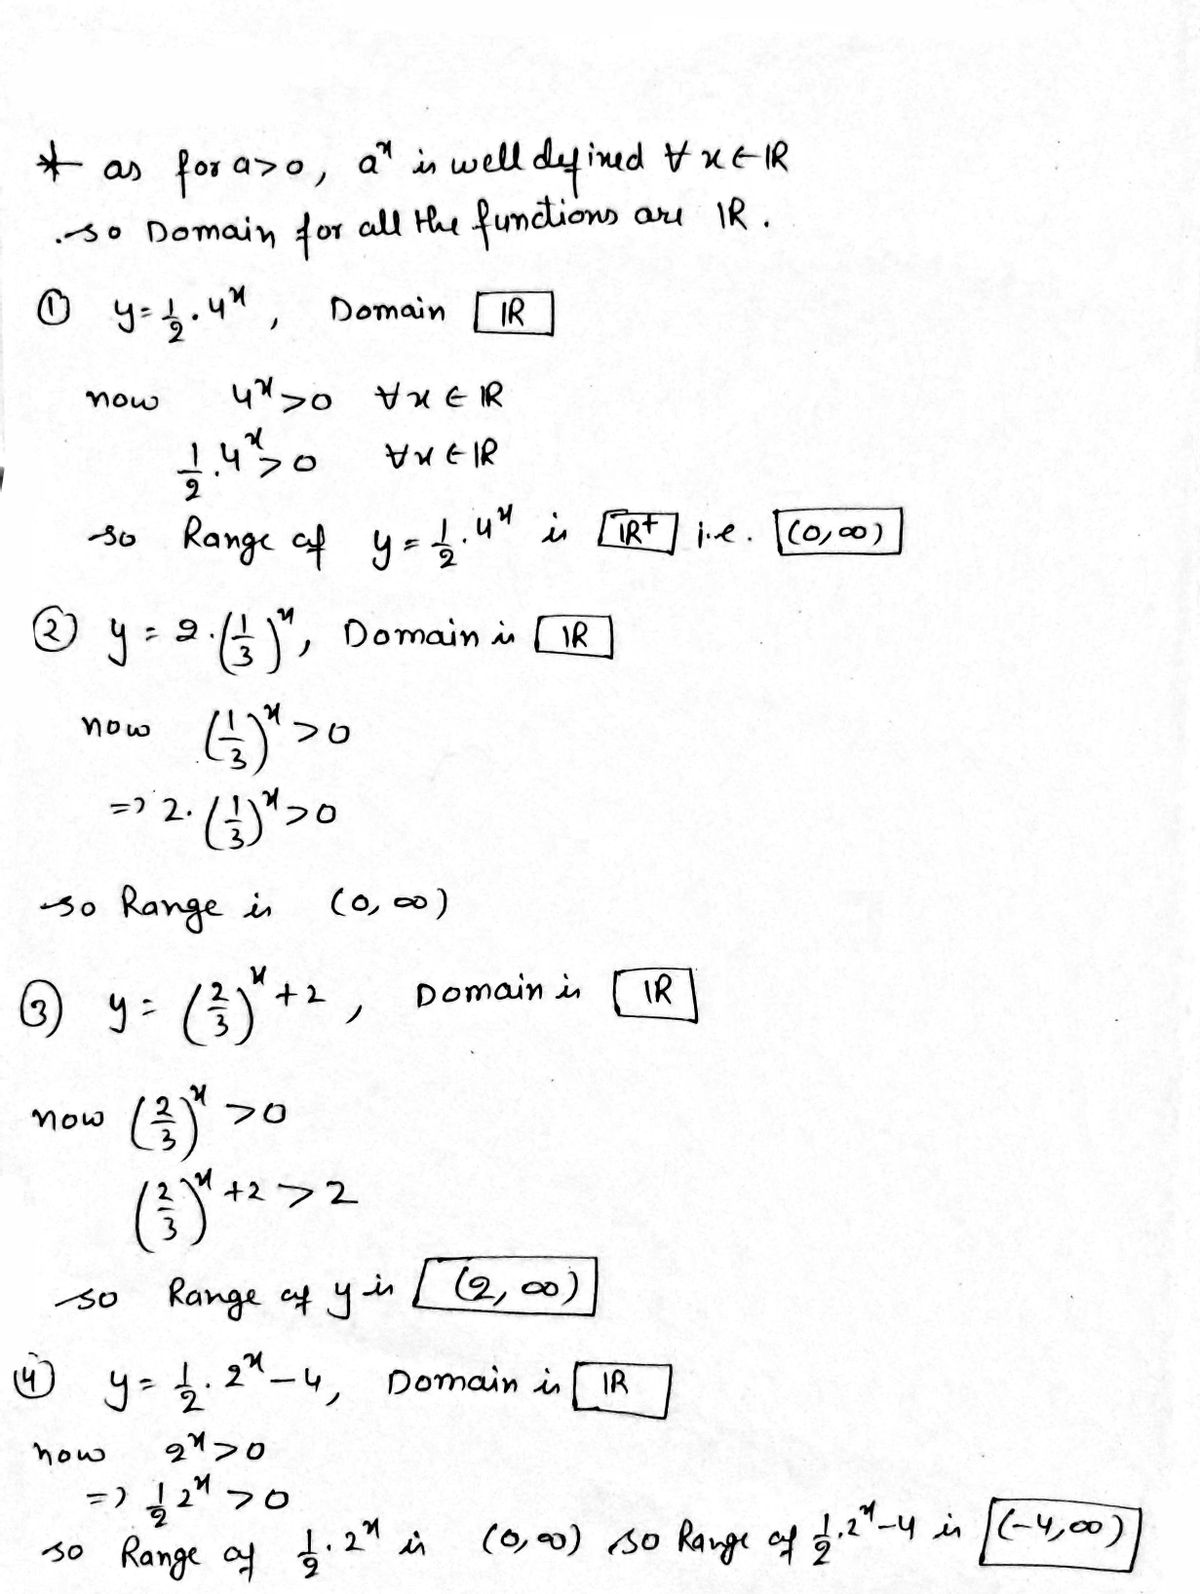 * as for a>0, aˣ is well defined ∀ x ∈ ℝ
.so Domain for all the functions are ℝ.
① y = 1/2 · 4ˣ, Domain ℝ
now 4ˣ > 0 ∀ x ∈ ℝ
1/2 · 4ˣ > 0 ∀ x ∈ ℝ
so Range of y = 1/2 · 4ˣ is ℝ⁺ i.e. (0, ∞)
② y = 2 · (1/3)ˣ, Domain is ℝ
now (1/3)ˣ > 0
=> 2 · (1/3)ˣ > 0
so Range is (0, ∞)
③ y = (2/3)ˣ + 2, Domain is ℝ
now (2/3)ˣ > 0
(2/3)ˣ + 2 > 2
so Range of y is (2, ∞)
④ y = 1/2 · 2ˣ - 4, Domain is ℝ
now 2ˣ > 0
=> 1/2 2ˣ > 0
so Range of 1/2 · 2ˣ is (0, ∞) so Range of 1/2 · 2ˣ - 4 is (-4, ∞)